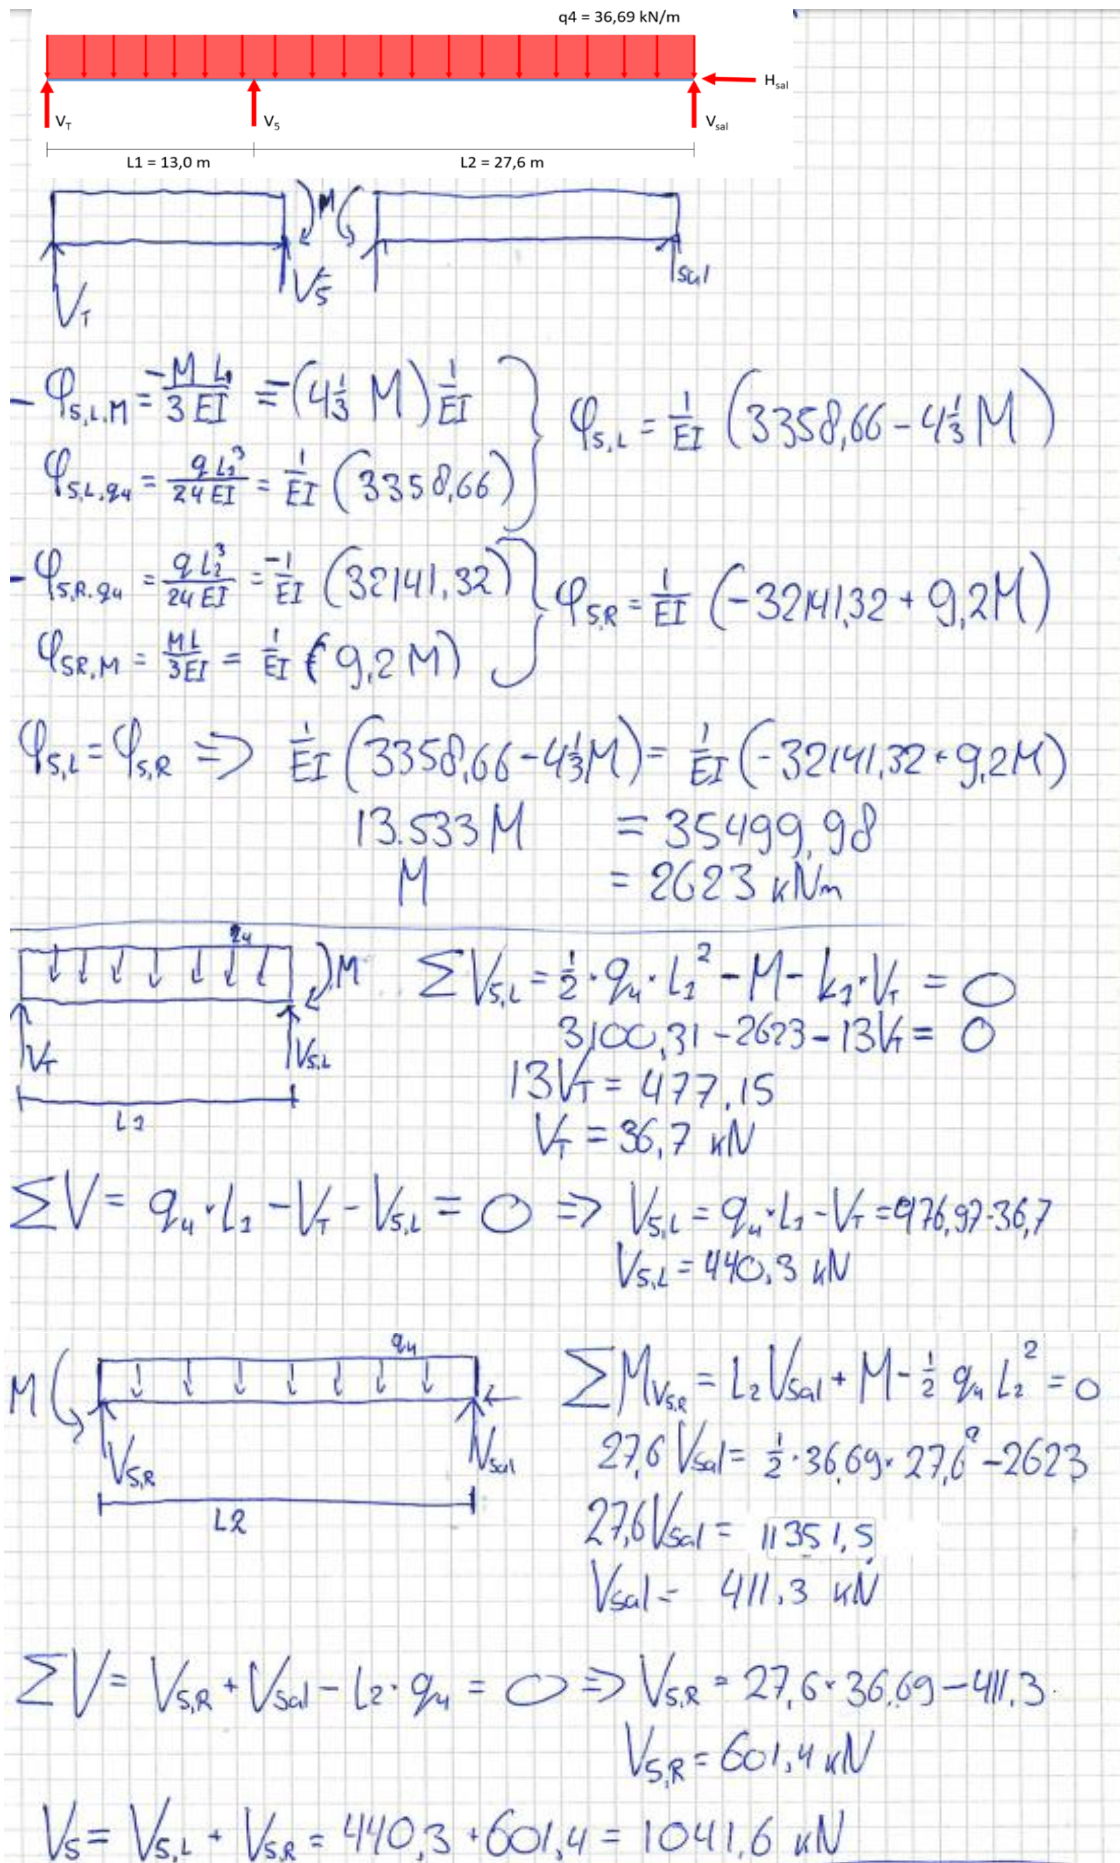 q4 = 36,69 kN/m
H_sal
V_T V_5 V_sal
L1 = 13,0 m L2 = 27,6 m
M
V_T V_5 sal
- φ_5,L,M = -M L_1 / 3 EI = -(4 1/3 M) 1/EI
φ_5,L,q4 = q L_1^3 / 24 EI = 1/EI (3358,66)
φ_5,L = 1/EI (3358,66 - 4 1/3 M)
- φ_5,R,q4 = q L_2^3 / 24 EI = -1/EI (32141,32)
φ_5R,M = ML / 3EI = 1/EI (9,2 M)
φ_5,R = 1/EI (-32141,32 + 9,2M)
φ_5,L = φ_5,R => 1/EI (3358,66 - 4 1/3 M) = 1/EI (-32141,32 + 9,2M)
13.533 M = 35499,98
M = 2623 kNm
q4 M
V_T V_5,L
L1
∑ V_5,L = 1/2 · q_4 · L_1^2 - M - L_1 · V_T = 0
3100,31 - 2623 - 13V_T = 0
13V_T = 477,15
V_T = 36,7 kN
∑V = q_4 · L_1 - V_T - V_5,L = 0 => V_5,L = q_4 · L_1 - V_T = 476,97 - 36,7
V_5,L = 440,3 kN
q4
M
V_5,R V_sal
L2
∑M_V5,R = L_2 V_sal + M - 1/2 q_4 L_2^2 = 0
27,6 V_sal = 1/2 · 36,69 · 27,6^2 - 2623
27,6 V_sal = 11351,5
V_sal = 411,3 kN
∑V = V_5,R + V_sal - L_2 · q_4 = 0 => V_5,R = 27,6 · 36,69 - 411,3
V_5,R = 601,4 kN
V_5 = V_5,L + V_5,R = 440,3 + 601,4 = 1041,6 kN